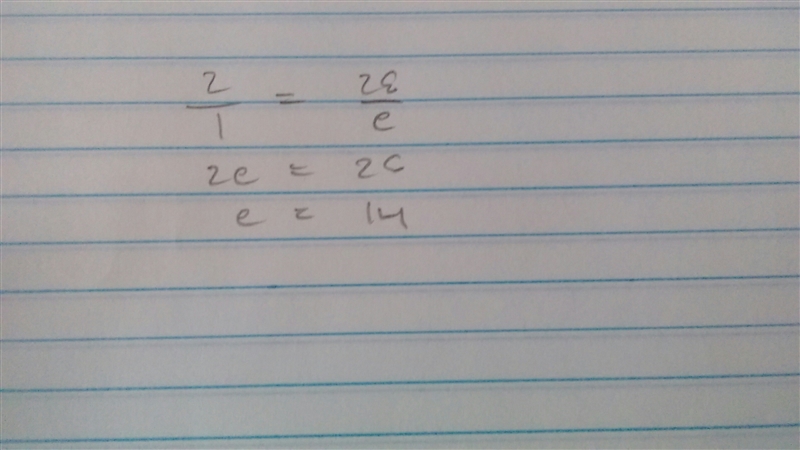 2/1 = 28/e
2e = 28
e = 14